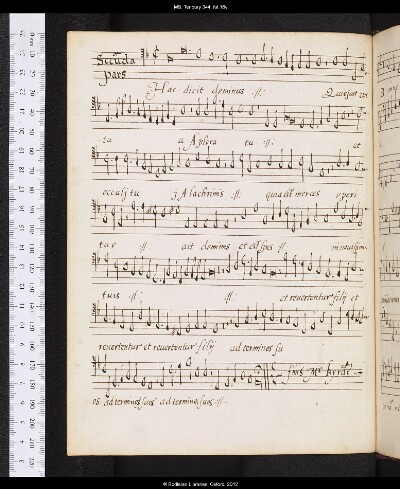 MS. Tenbury 344, fol. 16v
Secūda
pars
Hæc dicit dominus :ff: Quiescat vox
tua a plora tu :ff: et
occulj tu a lachrimis :ff: quia est merces operi
tuo :ff: ait dominus et est spes :ff: in nouissimis
tuis :ff: :ff: et reuertentur filij et
reuertentur et reuertentur filij ad terminos su
finis mr byrde
os ad terminos suos ad terminos suos :ff:
© Bodleian Libraries, Oxford, 2012